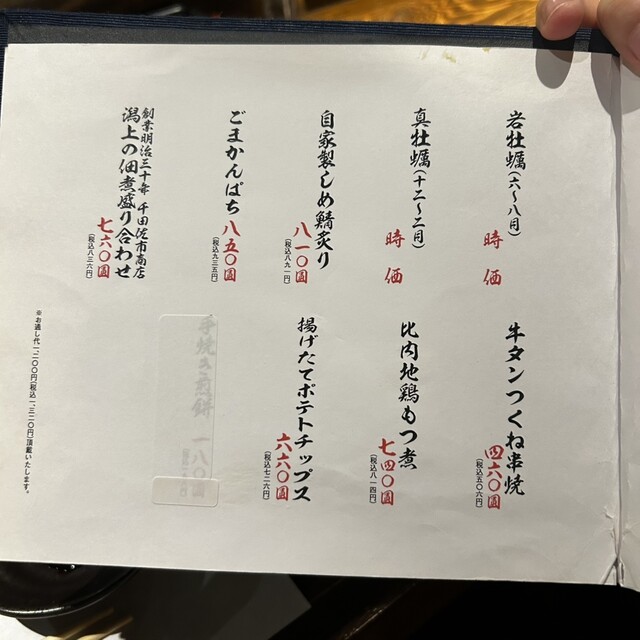 岩牡蠣(六〜八月)
時価
真牡蠣(十二〜二月)
時価
自家製しめ鯖炙り
八一〇圓
(税込八九一円)
ごまかんぱち
八五〇圓
(税込九三五円)
創業明治三十年 千田佐市商店
潟上の佃煮盛り合わせ
七六〇圓
(税込八三六円)
牛タンつくね串焼
四六〇圓
(税込五〇六円)
比内地鶏もつ煮
七四〇圓
(税込八一四円)
揚げたてポテトチップス
六六〇圓
(税込七二六円)
手焼き煎餅 一八〇圓
※お通し代一、二〇〇円(税込一、三二〇円)頂戴いたします。